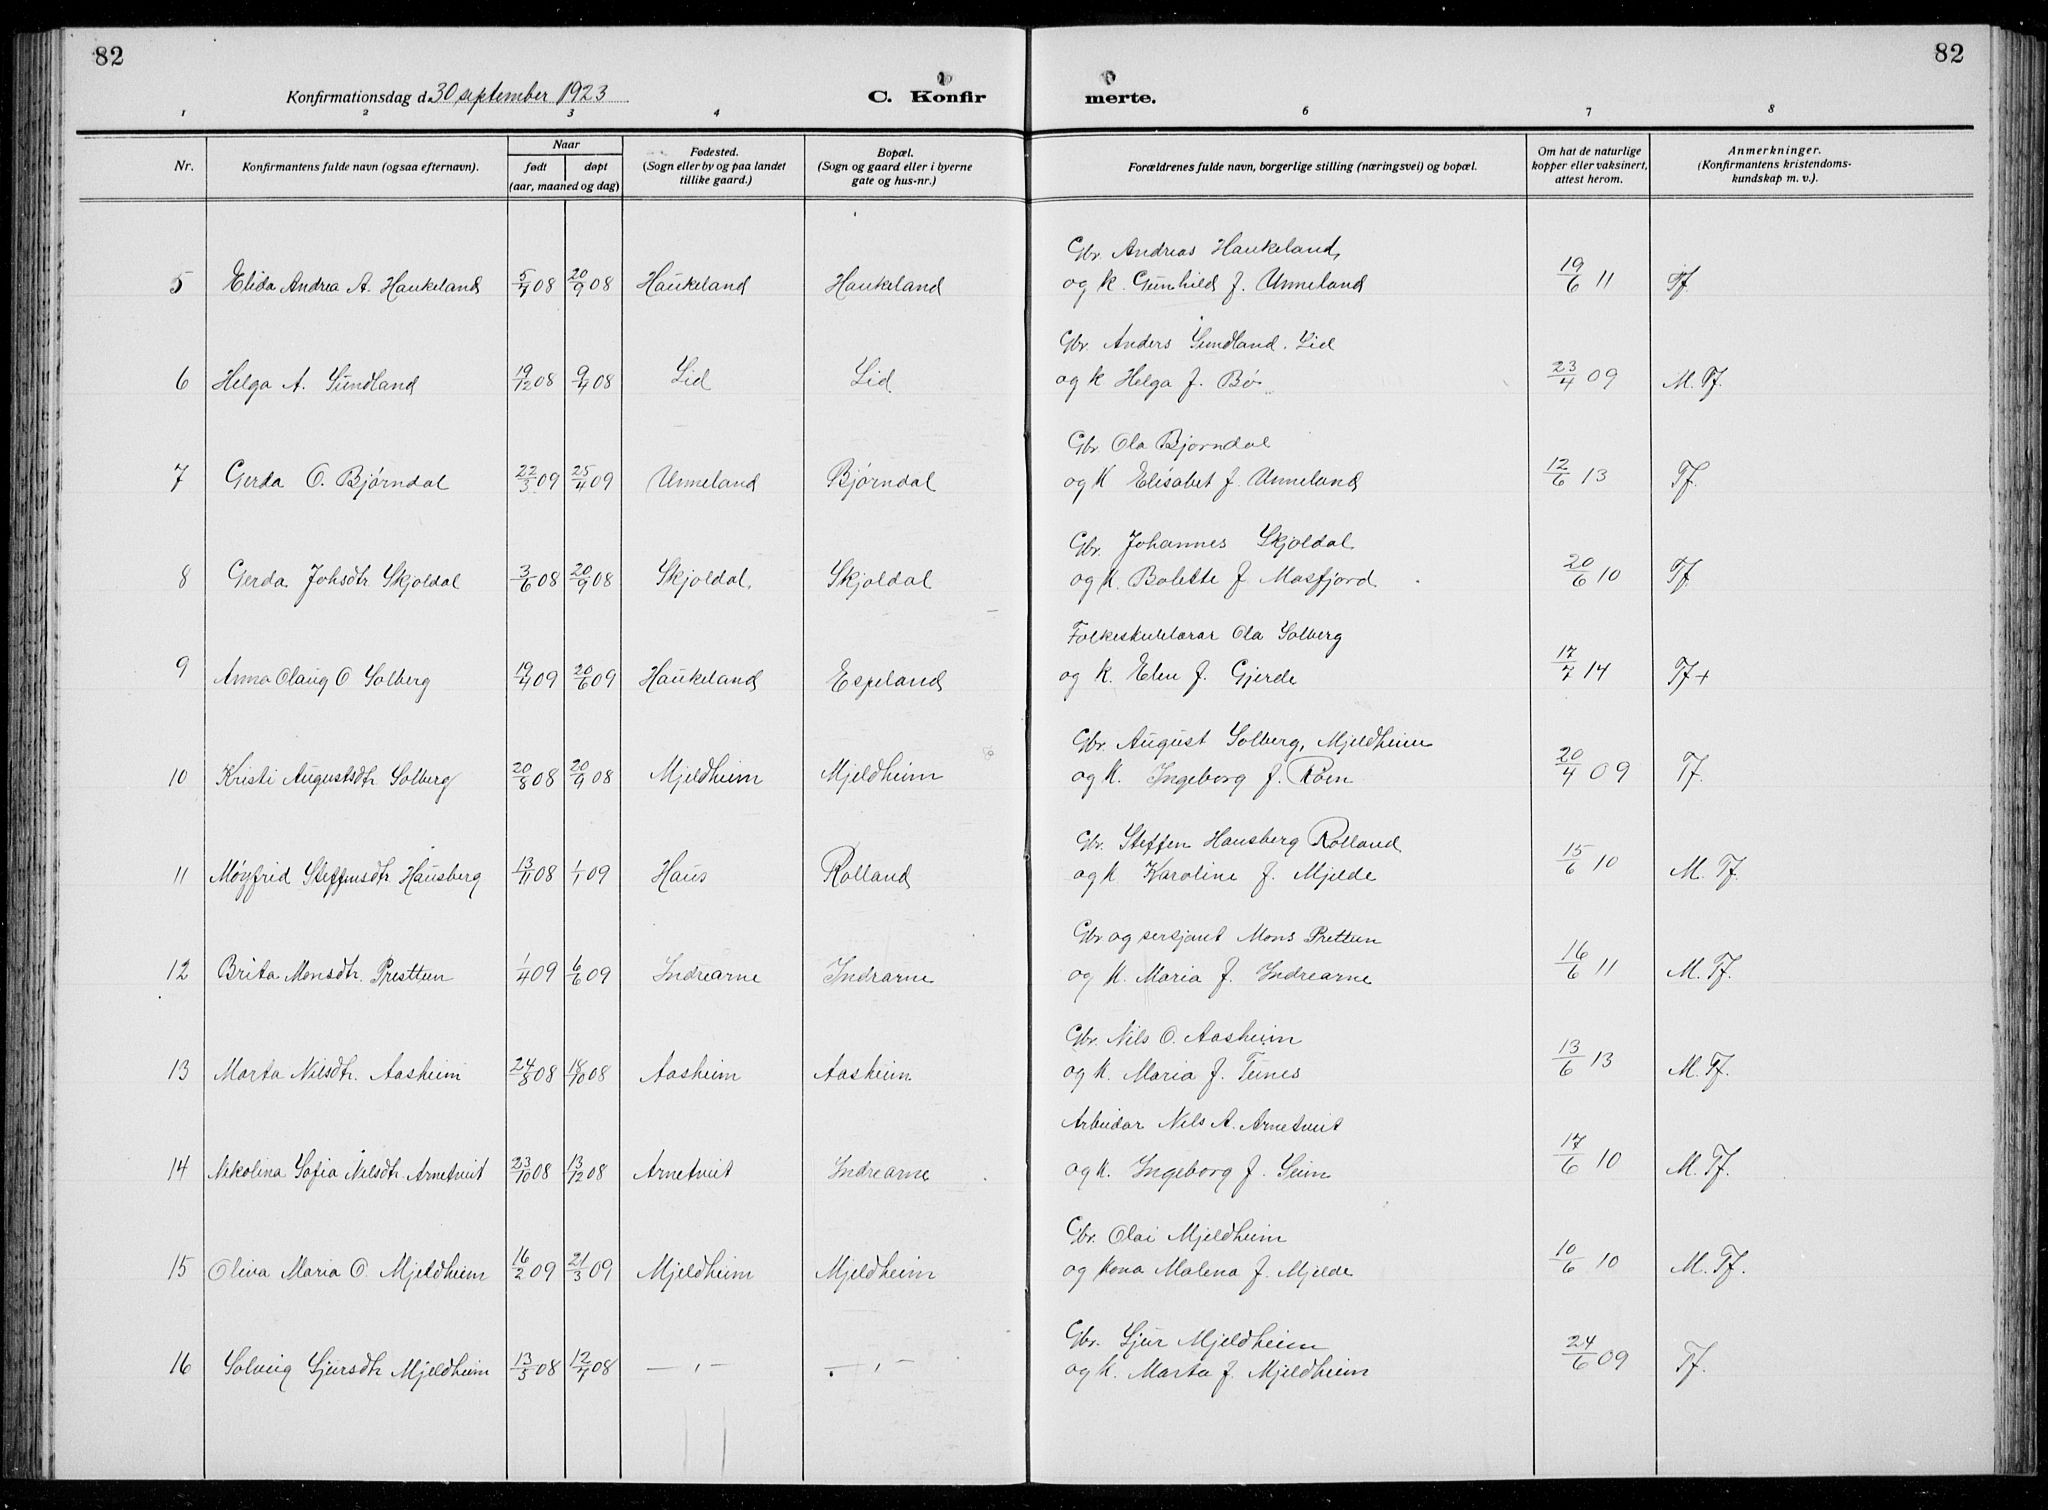 82
82
Konfirmationsdag d. 30 september 1923
C. Konfir
merte.
1 2 3 4 5 6 7 8
Nr.
Konfirmantens fulde navn (ogsaa efternavn).
Naar
født døpt
(aar, maaned og dag)
Fødested.
(Sogn eller by og paa landet
tillike gaard.)
Bopæl.
(Sogn og gaard eller i byerne
gate og hus-nr.)
Forældrenes fulde navn, borgerlige stilling (næringsvei) og bopæl.
Om hat de naturlige
kopper eller vaksinert,
attest herom.
Anmerkninger.
(Konfirmantens kristendoms-
kundskap m. v.).
Gbr. Andreas Haukeland,
5 Elida Andrea A. Haukeland 5/7 08 20/9 08 Haukeland Haukeland og k. Gunhild f. Unneland 19/6 11 Tf.
Gbr. Anders Sundland. Lid
6 Helga A. Sundland 19/12 08 9/4 08 Lid Lid og k Helga f. Bø 23/4 09 M. Tf.
Gbr Ola Bjorndal
7 Gerda O. Bjørndal 22/3 09 25/4 09 Unneland Bjørndal og k Elisabet f. Unneland 12/6 13 Tf.
Gbr. Johannes Skjoldal
8 Gerda Johsdtr Skjoldal 3/6 08 20/9 08 Skjoldal Skjoldal og k. Bolette f Masfjord 20/6 10 Tf
Folkeskulelærar Ola Solberg
9 Anna Olaug O Solberg 19/4 09 20/6 09 Haukeland Espeland og k. Elen f. Gjerde 17/7 14 Tf +
Gbr. August Solberg, Mjeldheim
10 Kristi Augustsdtr Solberg 20/8 08 20/9 08 Mjeldheim Mjeldheim og k. Ingeborg f. Røen 20/4 09 Tf.
Gbr. Steffen Hausberg Rolland
11 Møyfrid Steffensdtr Hausberg 13/11 08 1/1 09 Haus Rolland og k Karoline f. Mjelde 15/6 10 M. Tf.
Gbr og sersjant Mons Prettun
12 Brita Monsdtr. Presttun 1/4 09 6/6 09 Indrearne Indrarne og k. Maria f. Indrearne 16/6 11 M. Tf.
Gbr. Nils O. Aasheim
13 Marta Nilsdtr. Aasheim 24/8 08 18/10 08 Aasheim Aasheim og k. Maria f. Tunes 13/6 13 M. Tf.
Arbeidar Nils A. Arnetveit
14 Nikolina Sofia Nilsdtr. Arnetveit 23/10 08 13/12 08 Arnetveit Indrearne og k. Ingeborg f. Seim 17/6 10 M. Tf.
Gbr. Olai Mjeldheim
15 Oliva Maria O. Mjeldheim 16/2 09 21/3 09 Mjeldheim Mjeldheim og kona Malena f. Mjelde 10/6 10 M. Tf.
Gbr. Sjur Mjeldheim
16 Solveig Sjursdtr Mjeldheim 13/3 08 12/4 08 — " — — " — og k. Marta f. Mjeldheim 24/6 09 Tf.